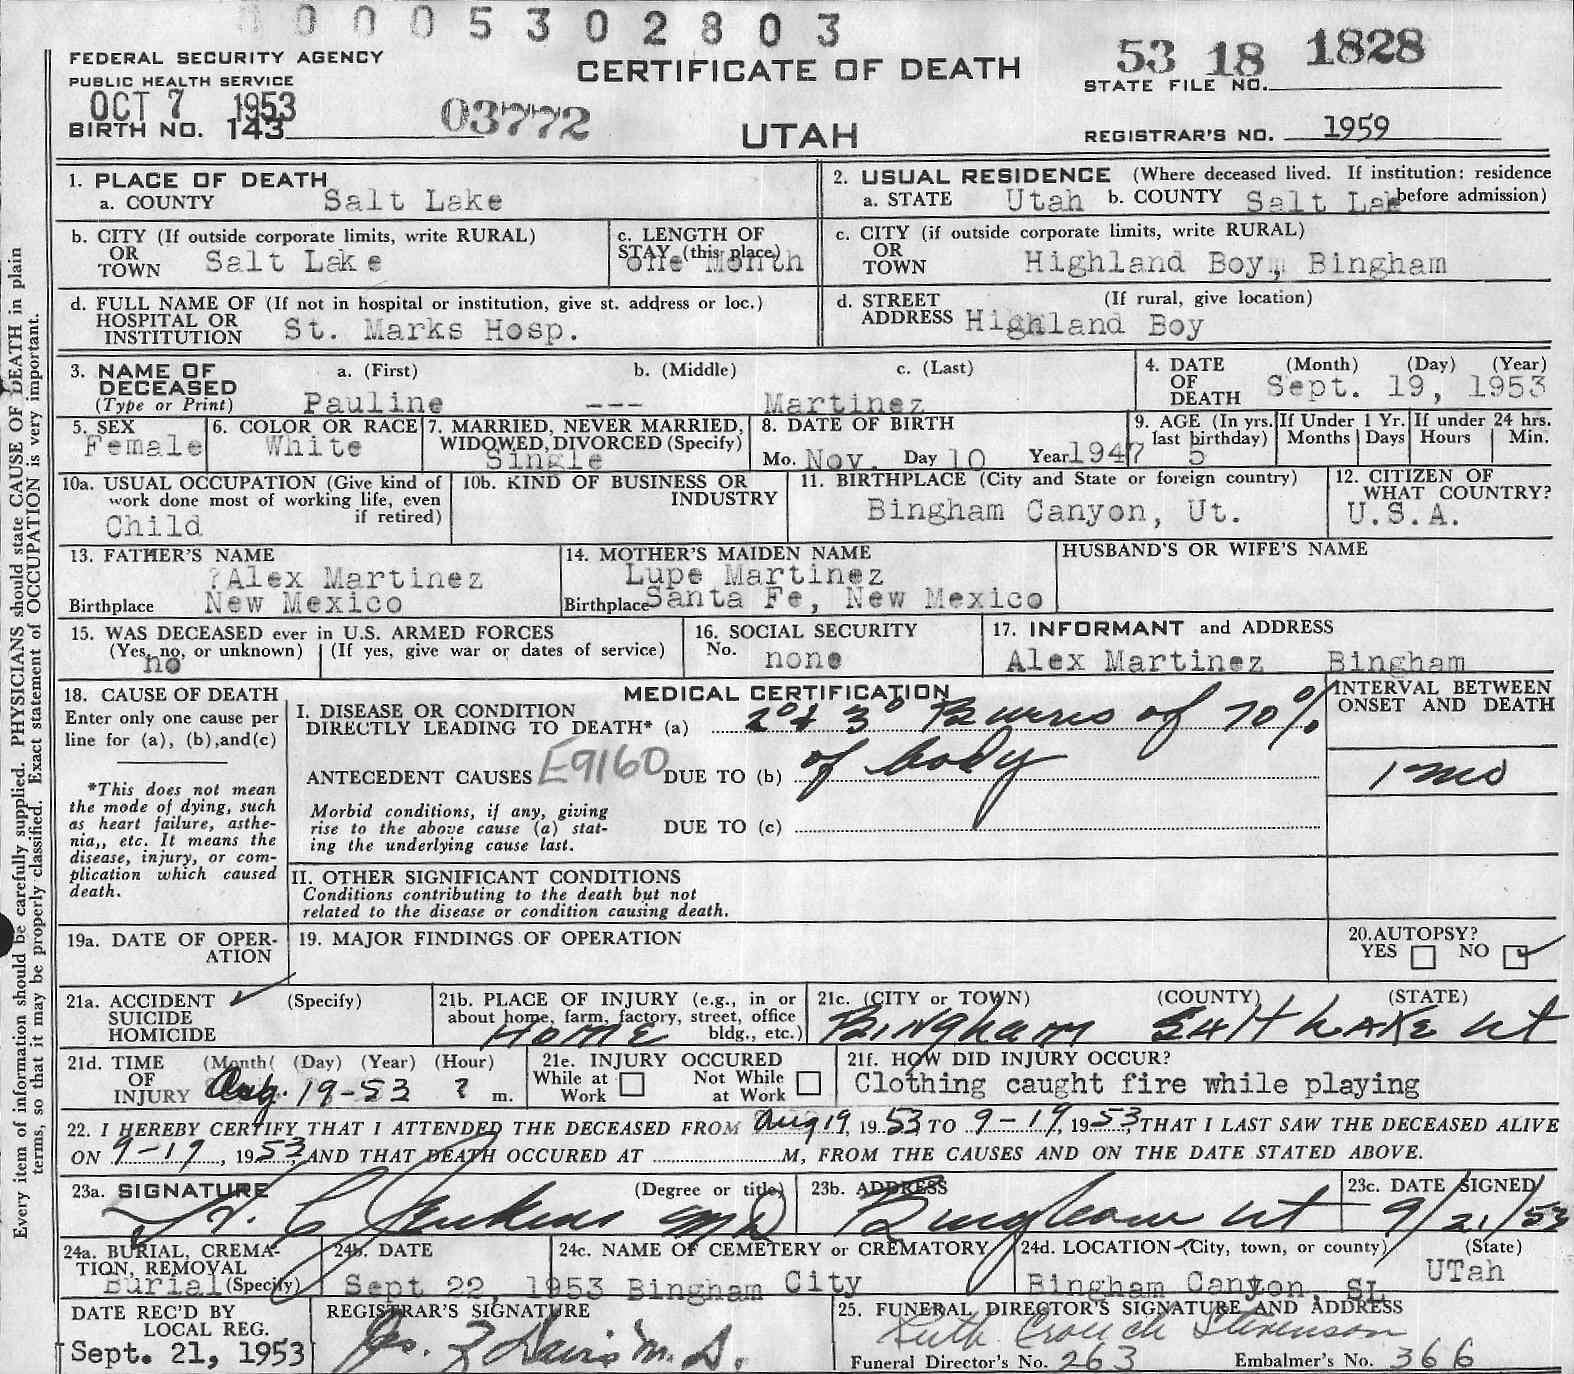 0 0 0 0 5 3 0 2 8 0 3
FEDERAL SECURITY AGENCY
PUBLIC HEALTH SERVICE
OCT 7 1953
BIRTH NO. 143
03772
CERTIFICATE OF DEATH
UTAH
53 18 1828
STATE FILE NO.
REGISTRAR'S NO. 1959
Every item of information should be carefully supplied. PHYSICIANS should state CAUSE OF DEATH in plain
terms, so that it may be properly classified. Exact statement of OCCUPATION is very important.
1. PLACE OF DEATH
a. COUNTY Salt Lake
2. USUAL RESIDENCE (Where deceased lived. If institution: residence
before admission)
a. STATE Utah b. COUNTY Salt Lake
b. CITY (If outside corporate limits, write RURAL)
OR
TOWN Salt Lake
c. LENGTH OF
STAY (this place)
one Month
c. CITY (if outside corporate limits, write RURAL)
OR
TOWN Highland Boy, Bingham
d. FULL NAME OF (If not in hospital or institution, give st. address or loc.)
HOSPITAL OR
INSTITUTION St. Marks Hosp.
d. STREET (If rural, give location)
ADDRESS Highland Boy
3. NAME OF
DECEASED
(Type or Print)
a. (First) b. (Middle) c. (Last)
Pauline --- Martinez
4. DATE (Month) (Day) (Year)
OF
DEATH Sept. 19, 1953
5. SEX
Female
6. COLOR OR RACE
White
7. MARRIED, NEVER MARRIED,
WIDOWED, DIVORCED (Specify)
Single
8. DATE OF BIRTH
Mo. Nov. Day 10 Year 1947
9. AGE (In yrs.
last birthday)
5
If Under 1 Yr.
Months Days
If under 24 hrs.
Hours Min.
10a. USUAL OCCUPATION (Give kind of
work done most of working life, even
if retired)
Child
10b. KIND OF BUSINESS OR
INDUSTRY
11. BIRTHPLACE (City and State or foreign country)
Bingham Canyon, Ut.
12. CITIZEN OF
WHAT COUNTRY?
U.S.A.
13. FATHER'S NAME
?Alex Martinez
Birthplace New Mexico
14. MOTHER'S MAIDEN NAME
Lupe Martinez
Birthplace Santa Fe, New Mexico
HUSBAND'S OR WIFE'S NAME
15. WAS DECEASED ever in U.S. ARMED FORCES
(Yes, no, or unknown) (If yes, give war or dates of service)
no
16. SOCIAL SECURITY
No. none
17. INFORMANT and ADDRESS
Alex Martinez Bingham
18. CAUSE OF DEATH
Enter only one cause per
line for (a), (b), and (c)
*This does not mean
the mode of dying, such
as heart failure, asthe-
nia,, etc. It means the
disease, injury, or com-
plication which caused
death.
MEDICAL CERTIFICATION
I. DISEASE OR CONDITION
DIRECTLY LEADING TO DEATH* (a) 2° & 3° Burns of 70%
ANTECEDENT CAUSES E9160 DUE TO (b) of body
Morbid conditions, if any, giving
rise to the above cause (a) stat-
ing the underlying cause last.
DUE TO (c)
II. OTHER SIGNIFICANT CONDITIONS
Conditions contributing to the death but not
related to the disease or condition causing death.
INTERVAL BETWEEN
ONSET AND DEATH
1 mo
19a. DATE OF OPER-
ATION
19. MAJOR FINDINGS OF OPERATION
20. AUTOPSY?
YES NO ✓
21a. ACCIDENT ✓ (Specify)
SUICIDE
HOMICIDE
21b. PLACE OF INJURY (e.g., in or
about home, farm, factory, street, office
bldg., etc.)
HOME
21c. (CITY or TOWN) (COUNTY) (STATE)
BINGHAM SALT LAKE UT
21d. TIME (Month) (Day) (Year) (Hour)
OF
INJURY Aug. 19-53 ? m.
21e. INJURY OCCURED
While at
Work
Not While
at Work
21f. HOW DID INJURY OCCUR?
Clothing caught fire while playing
22. I HEREBY CERTIFY THAT I ATTENDED THE DECEASED FROM Aug 19, 1953 TO 9-19, 1953, THAT I LAST SAW THE DECEASED ALIVE
ON 9-19, 1953, AND THAT DEATH OCCURED AT M, FROM THE CAUSES AND ON THE DATE STATED ABOVE.
23a. SIGNATURE (Degree or title)
Jenkins MD
23b. ADDRESS
Bingham Ut
23c. DATE SIGNED
9/21/53
24a. BURIAL, CREMA-
TION, REMOVAL
Burial (Specify)
24b. DATE
Sept 22, 1953
24c. NAME OF CEMETERY or CREMATORY
Bingham City
24d. LOCATION (City, town, or county) (State)
Bingham Canyon, SL UTah
DATE REC'D BY
LOCAL REG.
Sept. 21, 1953
REGISTRAR'S SIGNATURE
Davis M.D.
25. FUNERAL DIRECTOR'S SIGNATURE AND ADDRESS
Ruth Crouch Stevenson
Funeral Director's No. 263 Embalmer's No. 366